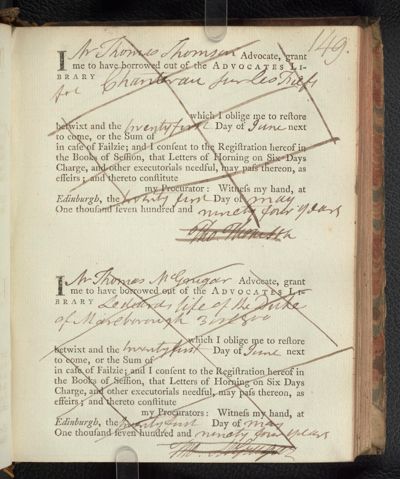 149.
I Mr Thomas Thomson Advocate, grant
me to have borrowed out of the ADVOCATES LI-
BRARY Chantereau sur les Fiefs
fol
which I oblige me to reſtore
betwixt and the twenty first Day of June next
to come, or the Sum of
in caſe of Failzie; and I conſent to the Regiſtration hereof in
the Books of Seſſion, that Letters of Horning on Six Days
Charge, and other executorials needful, may paſs thereon, as
effeirs; and thereto conſtitute
my Procurator: Witneſs my hand, at
Edinburgh, the twenty first Day of may
One thouſand ſeven hundred and ninety four years
Tho. Thomson
I Mr Thomas McGrugar Advocate, grant
me to have borrowed out of the ADVOCATES LI-
BRARY Lediards life of the Duke
of Marlborough 3 vol 8vo
which I oblige me to reſtore
betwixt and the twenty first Day of June next
to come, or the Sum of
in caſe of Failzie; and I conſent to the Regiſtration hereof in
the Books of Seſſion, that Letters of Horning on Six Days
Charge, and other executorials needful, may paſs thereon, as
effeirs; and thereto conſtitute
my Procurators: Witneſs my hand, at
Edinburgh, the twenty first Day of may
One thouſand ſeven hundred and ninety four years
Tho. McGrugar